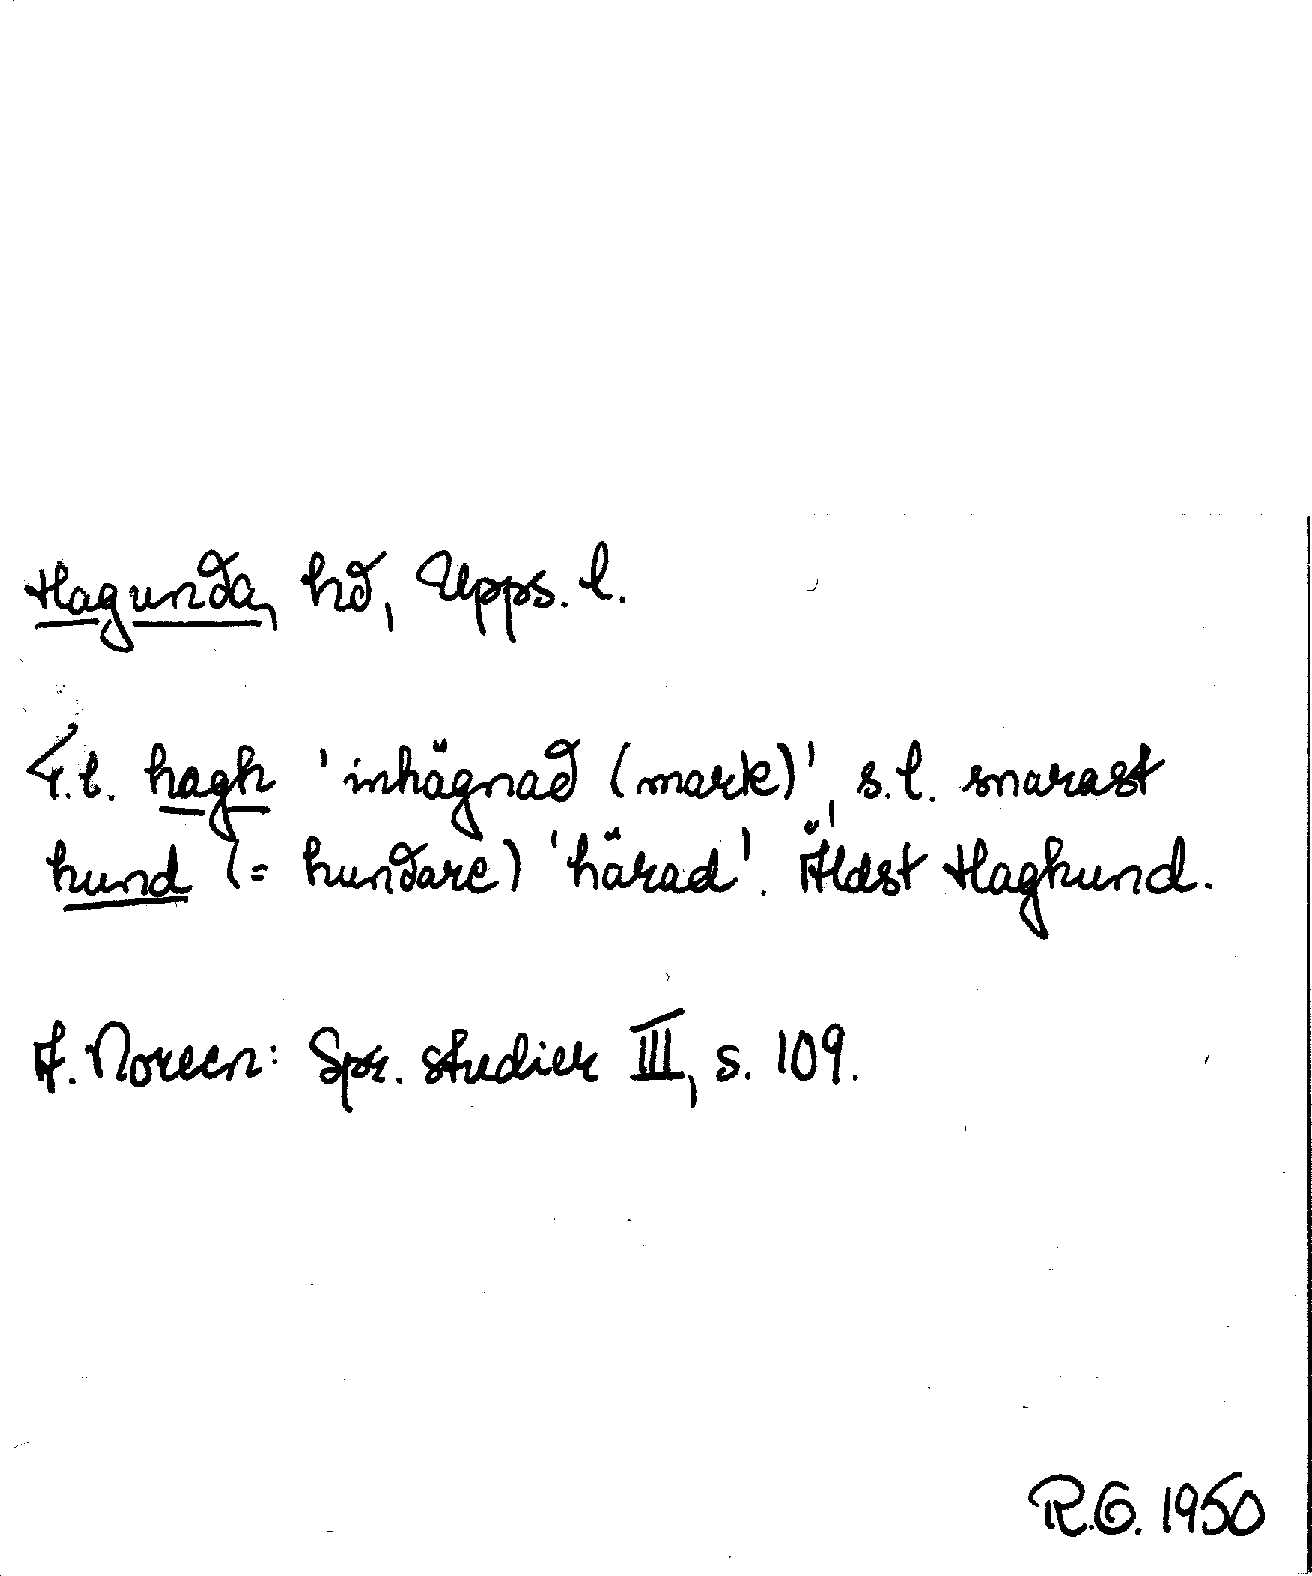 Hagunda, hd, Upps. l.
F.l. hagh 'inhägnad (mark)', s.l. snarast
hund (= hundare) 'härad'. Äldst Haghund.
A. Noreen: Spr. studier III, s. 109.
R.G. 1950